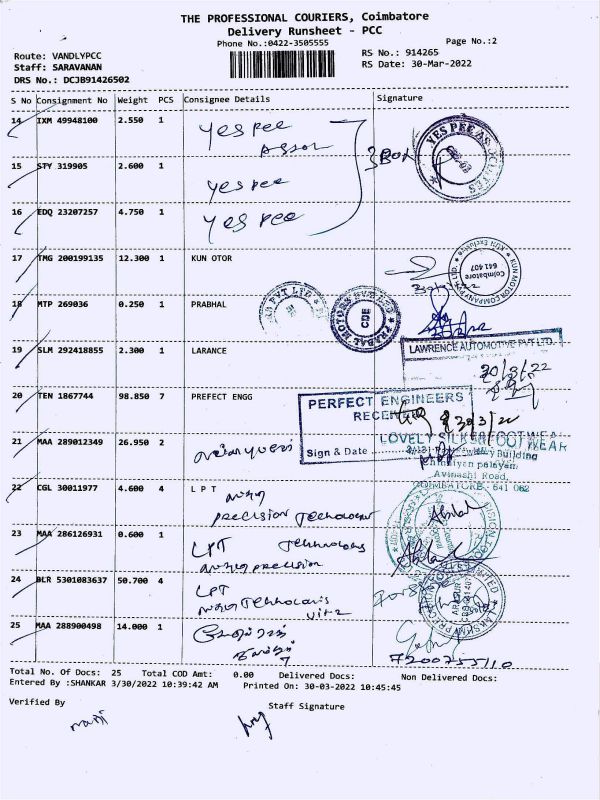 THE PROFESSIONAL COURIERS, Coimbatore
Delivery Runsheet - PCC
Phone No.:0422-3505555
Page No.:2
Route: VANDLYPCC
RS No.: 914265
Staff: SARAVANAN
RS Date: 30-Mar-2022
DRS No.: DCJB91426502
S No Consignment No Weight PCS Consignee Details Signature
14 IXM 49948100 2.550 1 Yes Pee
Assor
15 STY 319905 2.600 1 Yes Pee
3 Box
YES PEE ASSOCIATES
16 EDQ 23207257 4.750 1 Yes Pee
17 TMG 200199135 12.300 1 KUN OTOR
KUN MOTOR COMPANY PVT. LTD.
Coimbatore
641 407
18 MTP 269036 0.250 1 PRABHAL
PRABAL MOTORS PVT LTD
CBE
19 SLM 292418855 2.300 1 LARANCE
LAWRENCE AUTOMOTIVE PVT LTD.
30/3/22
20 TEN 1867744 98.850 7 PREFECT ENGG
PERFECT ENGINEERS
RECEIVED
30/3/22
Sign & Date
21 MAA 289012349 26.950 2
LOVELY SILKS & FOOTWEAR
Building
Chinniyam palayam,
Avinashi Road,
COIMBATORE - 641 062
22 CGL 30011977 4.600 4 LPT
precision Technologies
23 MAA 286126931 0.600 1 LPT Technologis
precision
24 BLR 5301083637 50.700 4 LPT
Unit 2
LAKSHMI PRECISION
25 MAA 288900498 14.000 1
7200755110
Total No. Of Docs: 25 Total COD Amt: 0.00 Delivered Docs: Non Delivered Docs:
Entered By :SHANKAR 3/30/2022 10:39:42 AM Printed On: 30-03-2022 10:45:45
Verified By Staff Signature